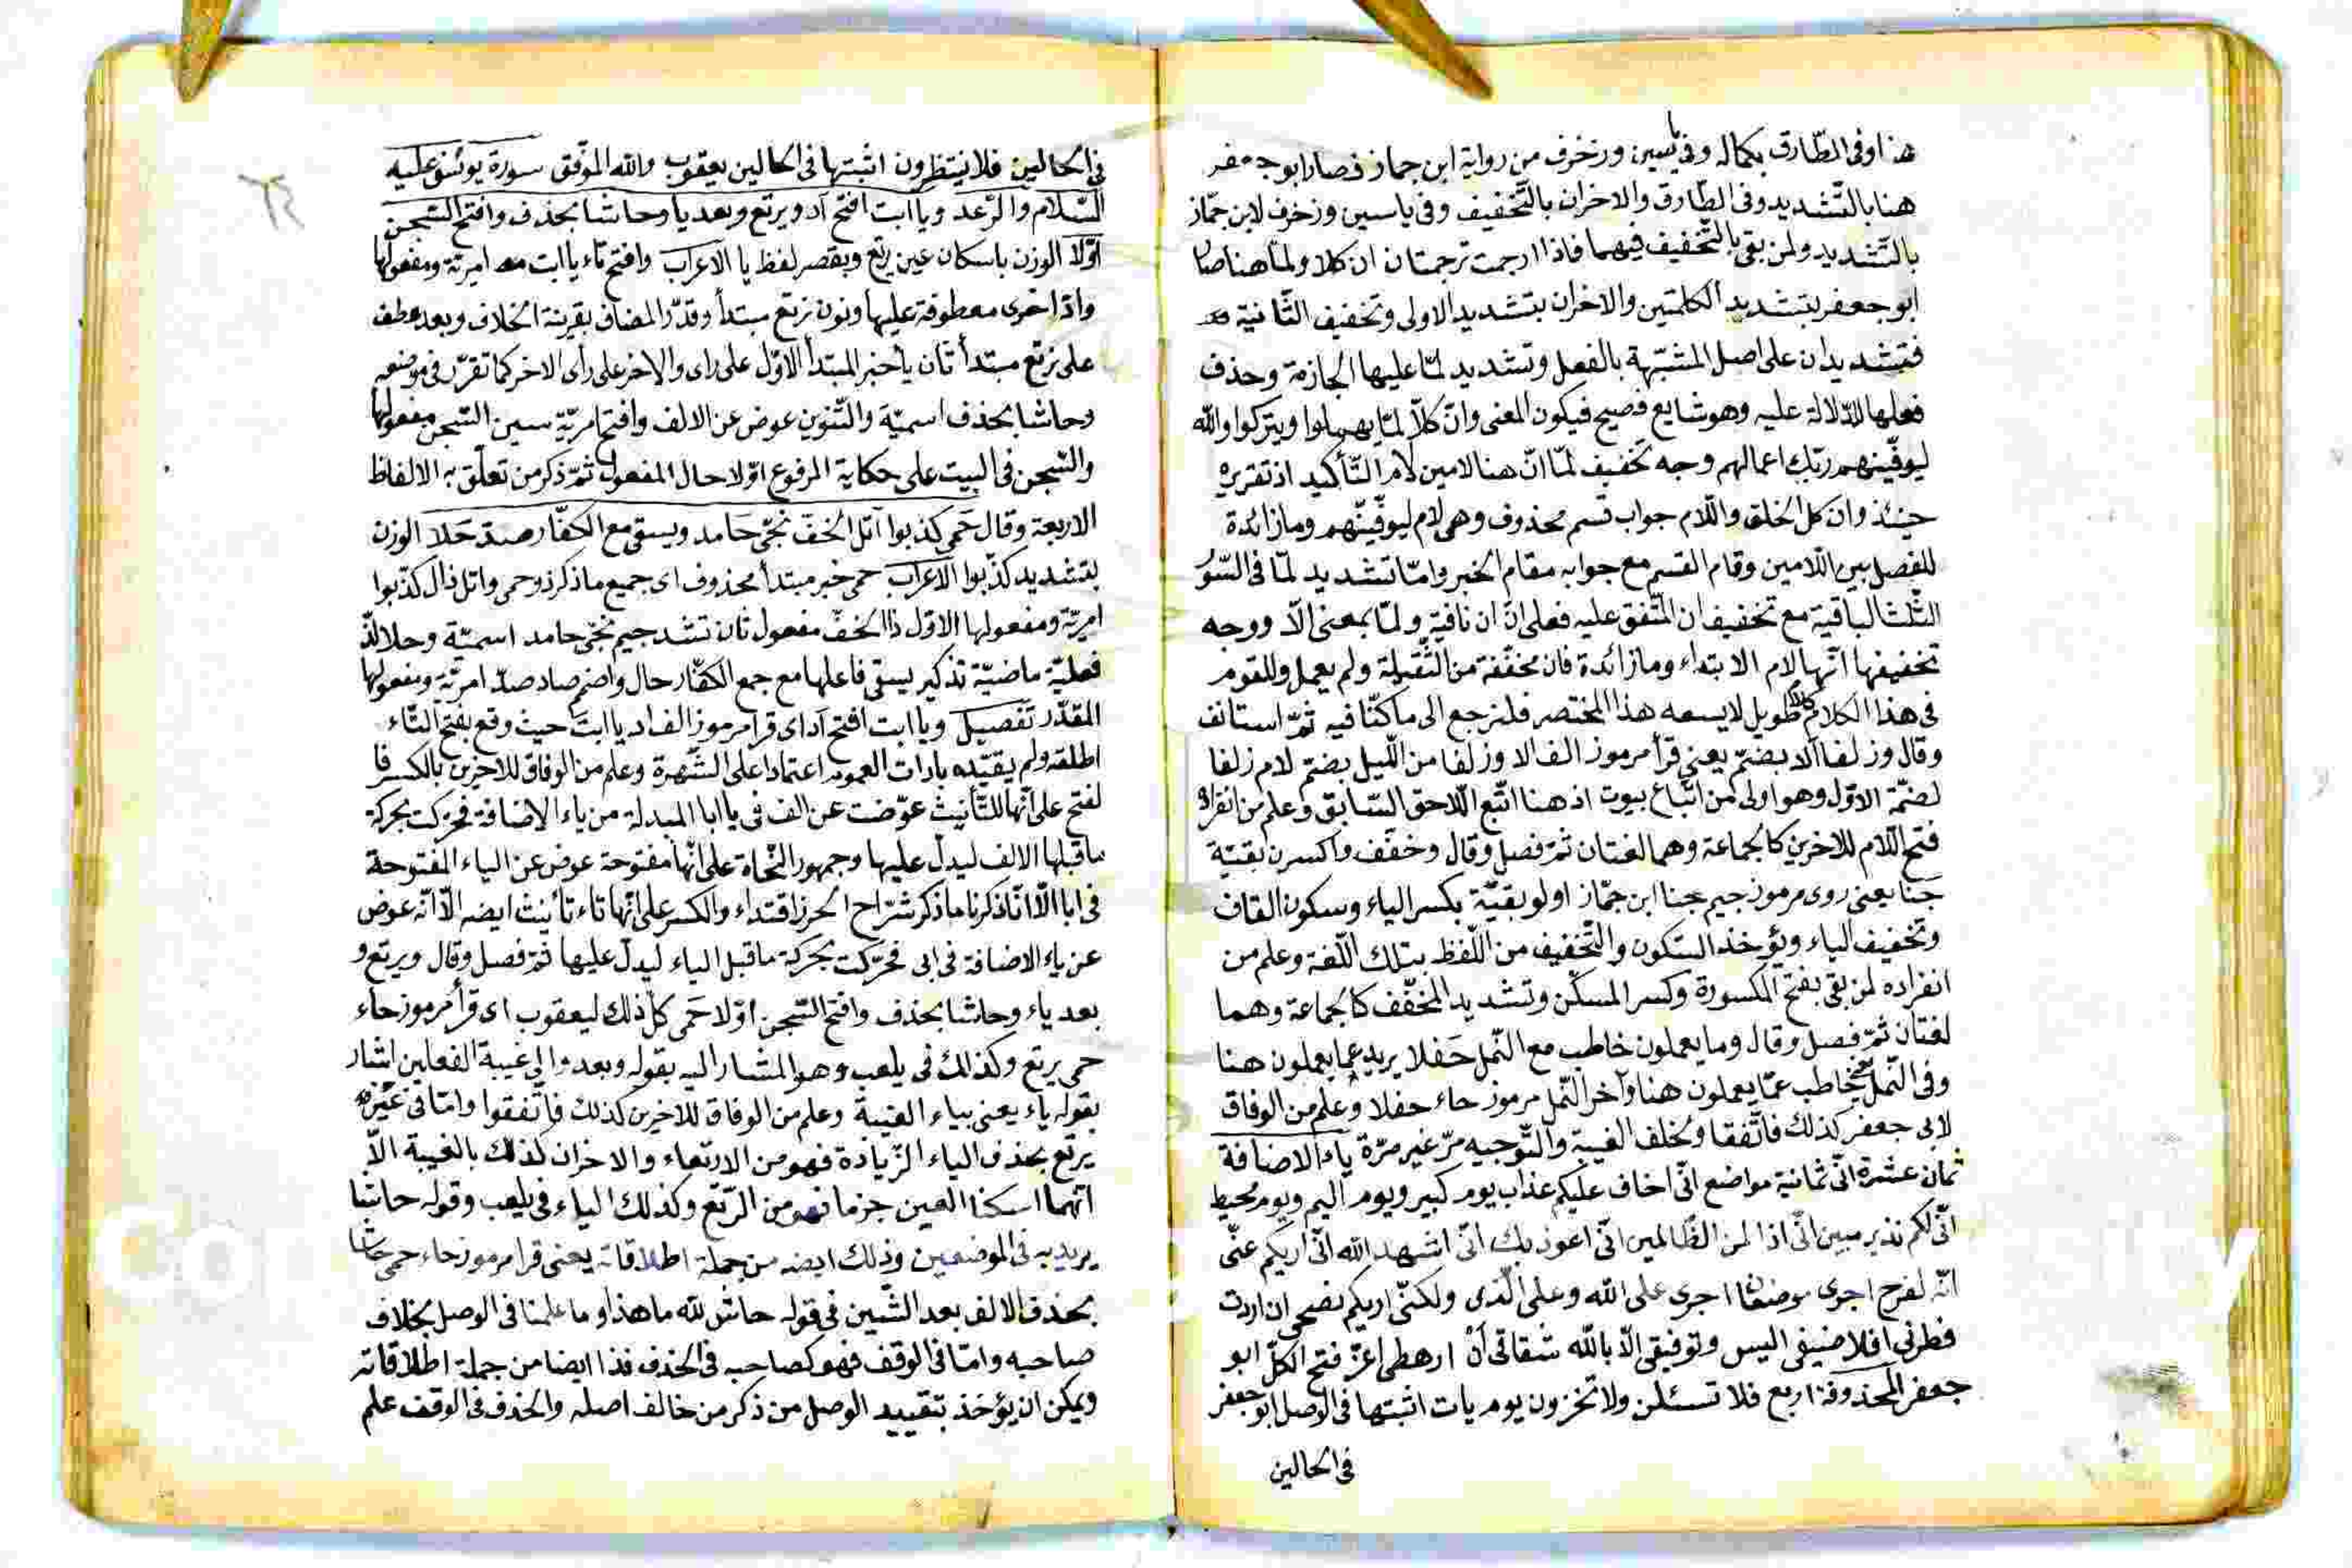 هنا وفى الطّارق بكماله وفى يسين وزخرف من رواية ابن جماز فصار ابو جعفر
هنا بالتّشديد وفى الطّارق والاخران بالتّخفيف وفى ياسين وزخرف لابن جمّاز
بالتّشديد ولمن بقى بالتّخفيف فيهما فاذا ارجمت ترجمتان ان كلا ولمّا هنا صار
ابو جعفر بتشديد الكلمتين والاخران بتشديد الاولى وتخفيف الثّانية
فتشديد ان على اصل المشبّهة بالفعل وتشديد لمّا عليها الجازمة وحذف
فعلها للدّلالة عليه وهو شايع فصيح فيكون المعنى وانّ كلاّ لمّا يهملوا ويتركوا والله
ليوفّينهم ربّك اعمالهم وجه تخفيف لمّا انّ هنا لامين لام التّأكيد اذ تقريره
حينئذ وان كل الخلق واللّام جواب قسم محذوف وهى لام ليوفّينّهم وما زائدة
للفصل بين اللّامين وقام القسم مع جوابه مقام الخبر وامّا تشديد لمّا فى السّور
الثّلث الباقية مع تخفيف ان المتّفق عليه فعلى انّ ان نافية ولمّا بمعنى الّا ووجه
تخفيفها انّها لام الابتداء وما زائدة فان مخفّفة من الثّقيلة ولم يعمل وللقوم
فى هذا الكلام كلام طويل لا يسعه هذا المختصر فلنرجع الى ما كنّا فيه ثمّ استانف
وقال وزلفا الا بضمّ يعنى قرأ مرموز الف الا وزلفا من اللّيل بضمّ لام زلفا
لضمّة الاوّل وهو اولى من اتّباع بيوت اذ هنا اتّبع اللّاحق السّابق وعلم من انفراده
فتح اللّام للاخرين كالجماعة وهما لغتان ثمّ فصل وقال وخفّف واكسرن بقيّة
جنا يعنى روى مرموز جيم جنا ابن جمّاز اولو بقيّة بكسر الباء وسكون القاف
وتخفيف الياء ويؤخذ السّكون والتّخفيف من اللّفظ بتلك اللّغة وعلم من
انفراده لمن بقى بفتح المكسورة وكسر المسكّن وتشديد المخفّف كالجماعة وهما
لغتان ثمّ فصل وقال وما يعملون خاطب مع النّمل حفلا يريد عما يعملون هنا
وفى النّمل يعنى خاطب عمّا يعملون هنا وآخر النّمل مرموز حاء حفلا وعلم من الوفاق
لابى جعفر كذلك فاتّفقا وخلف الغيبة والتّوجيه مرّ غير مرّة ياء الاضافة
ثمان عشرة انّى ثمانية مواضع انّى اخاف عليكم عذاب يوم كبير ويوم اليم ويوم محيط
انّى لكم نذير مبين انّى اذا لمن الظّالمين انّى اعوذ بك انّى اشهد الله انّى اريكم عنّى
انّه لفرح اجرى موضعان اجرى على الله وعلى الّذى ولكنّى اريكم نصحى ان اردت
فطرنى افلا ضيفى اليس وتوفيقى الّا بالله شقاقى أن ارهطى اعزّ فتح الكلّ ابو
جعفر المحذوفة اربع فلا تسئلن ولا تخزون يوم يات اثبتها فى الوصل ابو جعفر
فى الحالين
فى الحالين فلا ينتظرون اثبتها فى الحالين يعقوب والله الموفّق سورة يوسف عليه
السّلام والرّعد ويا ابت افتح آد ويرتع وبعد يا وحاشا بحذف وافتح السّجن
اوّلا الوزن باسكان عين يرتع وبقصر لفظ يا الاعراب وافتح تاء يا ابت امريّة ومفعولها
واد اخرى معطوفة عليها ونون نرتع مبتدأ وقدّر المضاف بقرينة الخلاف وبعد عطف
على نرتع مبتدأ ثان يا خبر المبتدأ الاوّل على راى والاخر على رأى الاخر كما تقرّر فى موضعه
وحاشا بحذف اسميّة والتّنوين عوض عن الالف وافتح امريّة سين السّجن مفعولها
والسّجن فى البيت على حكاية المرفوع اوّلا حال المفعول ثمّ ذكر من تعلّق به الالفاظ
الاربعة وقال حمى كذبوا آتل الخفّ نجّى حامد ويسقى مع الكفّار صد حلا الوزن
بتشديد كذّبوا الاعراب حمى خبر مبتدأ محذوف اى جميع ما ذكر ذو حمى واتل ذال كذّبوا
امريّة ومفعولها الاوّل ذا الخفّ مفعول ثان تشدّ جيم نجّى حامد اسميّة وحلا لذّ
فعليّة ماضيّة تذكير يسقى فاعلها مع جمع الكفّار حال واضمم صاد صدّ امريّة ومفعولها
المقدّر تفصيل ويا ابت افتح آد اى قرا مرموز الف اد يا ابت حيث وقع بفتح التّاء
اطلقه ولم يقيّده بادات العموم اعتمادا على الشّهرة وعلم من الوفاق للاخرين بالكسر فا
لفتح على انّها للتّأنيث عوّضت عن الف فى يا ابا المبدلة من ياء الاضافة فحرّكت بحركة
ما قبلها الالف ليدلّ عليها وجمهور النّحاة على انّها مفتوحة عوض عن الياء المفتوحة
فى ابا الّا انّا ذكرنا ما ذكر شرّاح الحرز اقتداء والكسر على انّها تاء تأنيث ايضه الّا انّه عوض
عن ياء الاضافة فى ابى فحرّكت بحركة ما قبل الياء ليدلّ عليها ثمّ فصل وقال ويرتع و
بعد ياء وحاشا بحذف وافتح السّجن اوّلا حمى كلّ ذلك ليعقوب اى قرأ مرموز حاء
حمى يرتع وكذلك فى يلعب وهو المشار اليه بقوله وبعد والى غيبة الفعلين اشار
بقوله ياء يعنى بياء الغيبة وعلم من الوفاق للاخرين كذلك فاتّفقوا وامّا فى عين
يرتع بحذف الياء الزّيادة فهو من الارتعاء والاخران كذلك بالغيبة الّا
انّهما اسكنا العين جزما فهو من الرّتع وكذلك الياء فى يلعب وقوله حاشا
يريد به فى الموضعين وذلك ايضه من جملة اطلاقاته يعنى قرا مرموز حاء حمى حاشا
بحذف الالف بعد الشّين فى قوله حاش لله ما هذا وما علمنا فى الوصل بخلاف
صاحبه وامّا فى الوقف فهو كصاحبه فى الحذف فذا ايضا من جملة اطلاقاته
ويمكن ان يؤخذ بتقييد الوصل من ذكر من خالف اصله والحذف فى الوقف علم